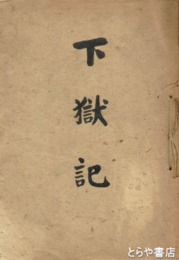 下獄記
とらや書店